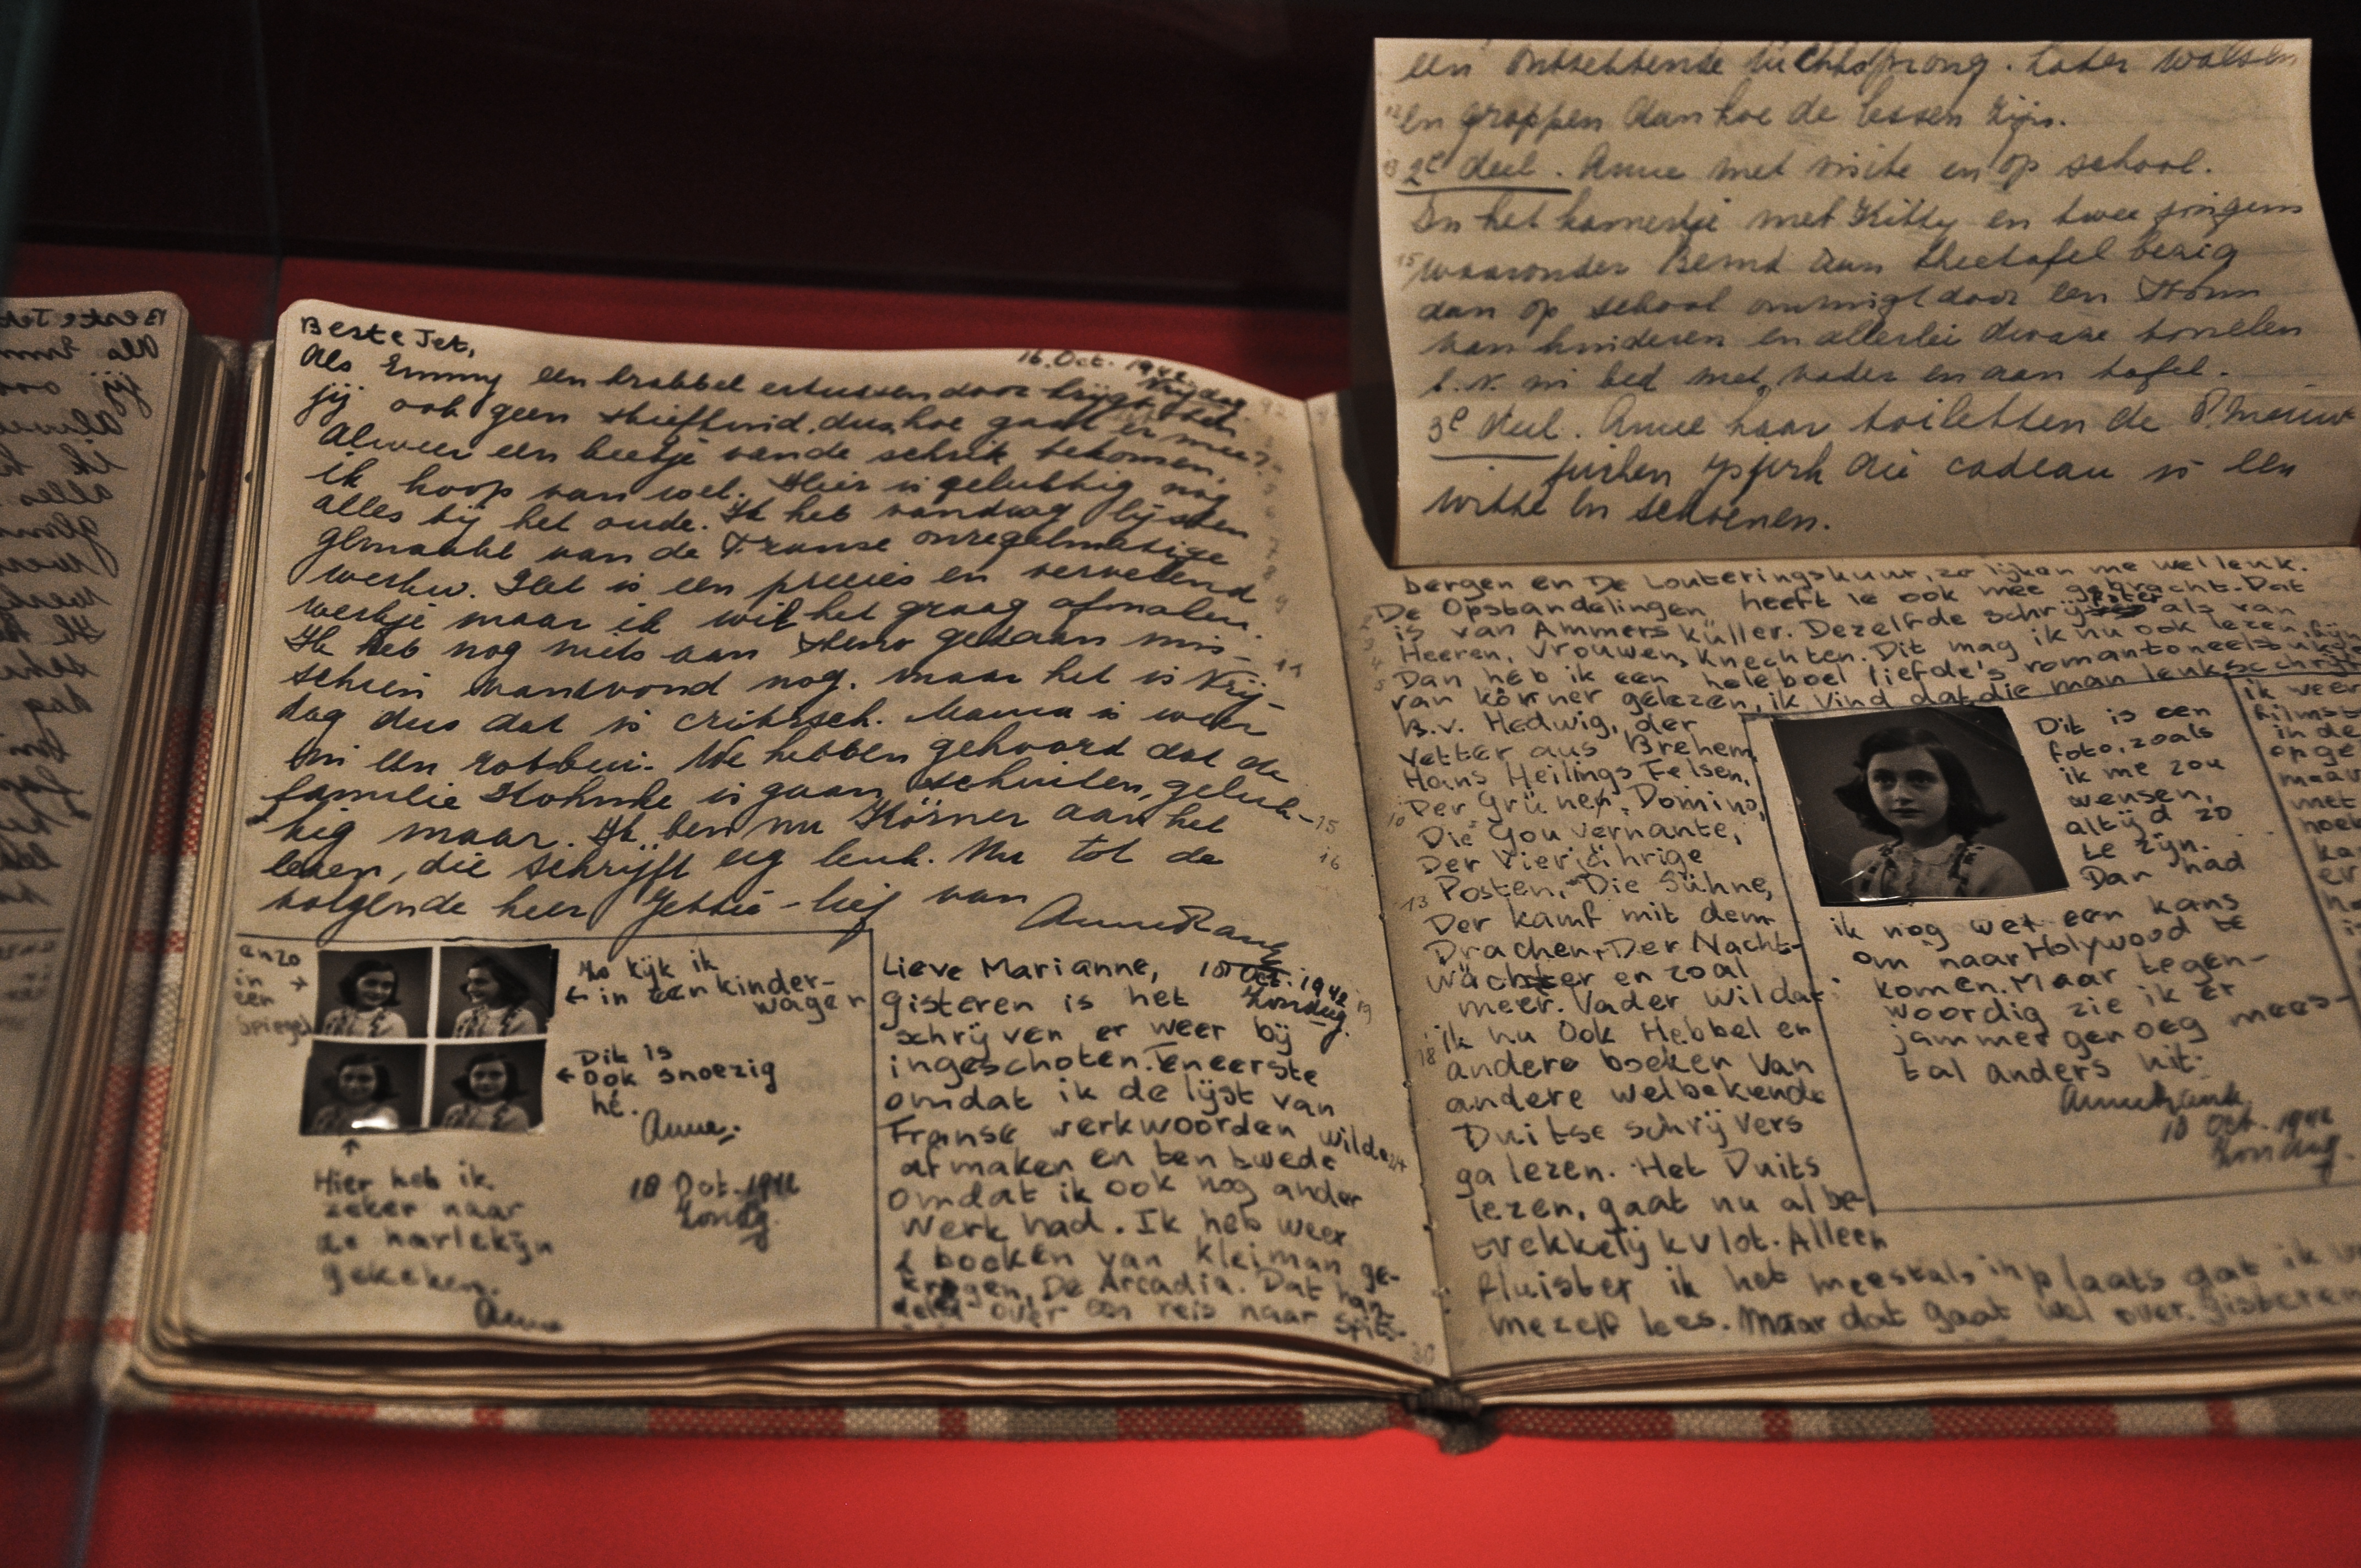 een ontzettende luchtsprong. Later walsen
en grappen dan hoe de lessen zijn.
2e deel. Anne met visite en op school.
In het kamertje met Kitty en twee jongens
waaronder Bernd aan theetafel bezig
dan op school omringt door een
van kinderen en allerlei dwaze tonelen
b.v. in bed met vader en aan tafel.
3e deel. Anne haar toiletten de 8 nieuwe
jurken die cadeau is een
witte en schoenen.
Beste Jet,
16. Oct. 1942
Vrijdag.
Als Emmy een krabbel ertussendoor krijgt
jij ook geen stiefkind, dus hoe gaat er mee?
Alweer een beetje van de schrik bekomen,
ik hoop van wel. Hier is gelukkig nog
alles bij het oude. Ik heb vandaag lijsten
gemaakt van de Franse onregelmatige
werkw. Het is een precies en vervelend
werkje maar ik wil het graag afmaken.
Ik heb nog niets aan Steno gedaan mis-
schien vanavond nog. maar het is Vrij-
dag dus dat is critisch. Mama is weer
in een rotbui. We hebben gehoord dat de
familie is gaan schuilen, geluk-
kig maar. Ik ben nu Körner aan het
lezen, die schrijft erg leuk. Nu tot de
volgende keer Jettie-lief van
Anne Frank
enzo
in
een
spiegel
Zo kijk ik
← in een kinder-
wagen
← Dit is
ook snoezig
hé.
Anne.
Hier heb ik
zeker naar
de harlekijn
gekeken.
Anne
18 Oct. 1942
Zondag.
Lieve Marianne,
18 Oct. 1942
Zondag.
gisteren is het
schrijven er weer bij
ingeschoten. Teneerste
omdat ik de lijst van
Franse werkwoorden wilde
afmaken en ten twede
omdat ik ook nog ander
werk had. Ik heb weer
2 boeken van Kleiman ge-
kregen, De Arcadia. Dat han-
delt over een reis naar Spits-
bergen en De Louteringskuur, zo lijken me wel leuk.
De Opstandelingen heeft ie ook mee gebracht. Dat
is van Ammers Küller. Dezelfde schrijfster als van
Heeren, Vrouwen, Knechten. Dit mag ik nu ook lezen, fijn
Dan heb ik een heleboel liefde's romantoneelstukken
van körner gelezen, ik vind dat die man leuk schrijft
B.v. Hedwig, der
Vetter aus Brehem,
Hans Heilings Felsen,
Der Grünen Domino,
Die Gouvernante,
Der Vierjährige
Posten, Die Sühne,
Der kamf mit dem
Drachen, Der Nacht-
wächter en zoal
meer. Vader wil dat
ik nu ook Hebbel en
andere boeken van
andere welbekende
Duitse schrijvers
ga lezen. Het Duits
lezen, gaat nu al be-
trekkelijk vlot. Alleen
fluister ik het meestal, inplaats dat ik
mezelf lees. Maar dat gaat wel over. Gisteren
Dit is een
foto, zoals
ik me zou
wensen,
altijd zo
te zijn.
Dan had
ik nog wel een kans
om naar Holywood te
komen. Maar tegen-
woordig zie ik er
jammer genoeg mees-
tal anders uit.
Anne Frank
18 Oct. 1942
Zondag.
ik weer
in de
met